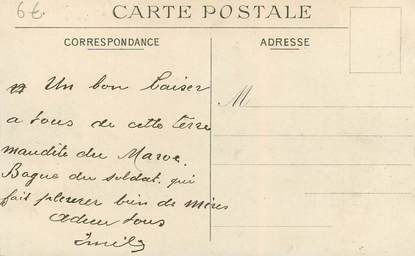 6€
CARTE POSTALE
CORRESPONDANCE
ADRESSE
Un bon baiser
a tous de cette terre
maudite du Maroc.
Bagne du soldat qui
fait pleurer bien de mères
adieu tous
M